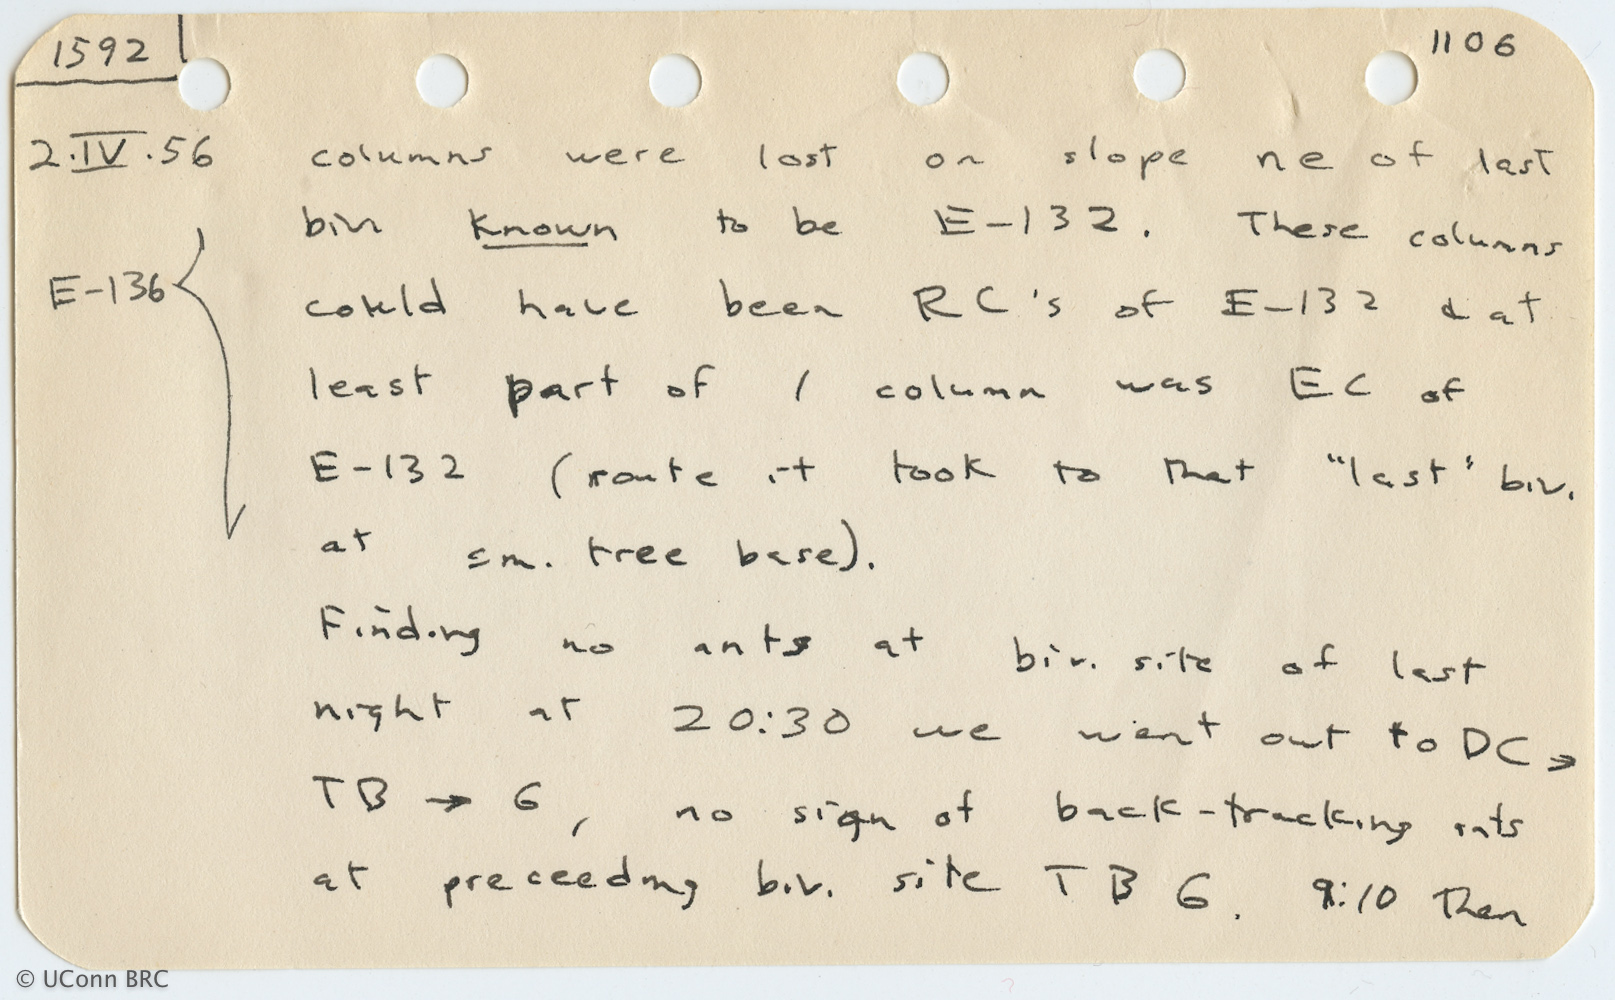 1592
1106
2.IV.56 columns were lost on slope ne of last
biv known to be E-132. These columns
E-136 could have been RC's of E-132 & at
least part of 1 column was EC of
E-132 (route it took to that "last" biv.
at sm. tree base).
Finding no ants at biv. site of last
night at 20:30 we went out to DC →
TB → 6, no sign of back-tracking ants
at preceeding biv. site TB 6. 9:10 Then
© UConn BRC